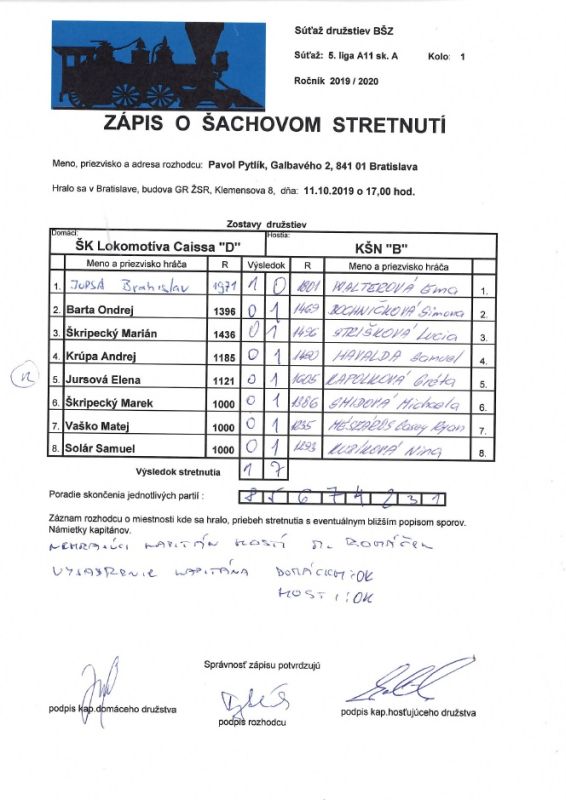 Súťaž družstiev BŠZ
Súťaž: 5. liga A11 sk. A Kolo: 1
Ročník 2019 / 2020
ZÁPIS O ŠACHOVOM STRETNUTÍ
Meno, priezvisko a adresa rozhodcu: Pavol Pytlík, Galbavého 2, 841 01 Bratislava
Hralo sa v Bratislave, budova GR ŽSR, Klemensova 8, dňa: 11.10.2019 o 17,00 hod.
Zostavy družstiev
Domáci: Hostia:
ŠK Lokomotiva Caissa "D" KŠN "B"
Meno a priezvisko hráča R Výsledok R Meno a priezvisko hráča
1. JUPSA Bratislav 1971 1 0 1801 WALTEROVÁ Ema 1.
2. Barta Ondrej 1396 0 1 1469 BOCHNIČKOVÁ Simona 2.
3. Škripecký Marián 1436 0 1 1496 STRIŠKOVÁ Lucia 3.
4. Krúpa Andrej 1185 0 1 HAVALDA Samuel 4.
5. Jursová Elena 1121 0 1 1605 KAPOLKOVÁ Gréta 5.
6. Škripecký Marek 1000 0 1 1386 Michaela 6.
7. Vaško Matej 1000 0 1 1235 MÉSZÁROS Casey Ryan 7.
8. Solár Samuel 1000 0 1 1293 Nina 8.
Výsledok stretnutia 1 7
Poradie skončenia jednotlivých partií : 8 5 6 7 4 2 3 1
Záznam rozhodcu o miestnosti kde sa hralo, priebeh stretnutia s eventuálnym bližším popisom sporov.
Námietky kapitánov.
NEHRAJÚCI KAPITÁN HOSTÍ M. ROMÁČEK
VYJADRENIE KAPITÁNA DOMÁCICH: OK
HOSTÍ: OK
Správnosť zápisu potvrdzujú
podpis kap.domáceho družstva
podpis rozhodcu
podpis kap.hosťujúceho družstva